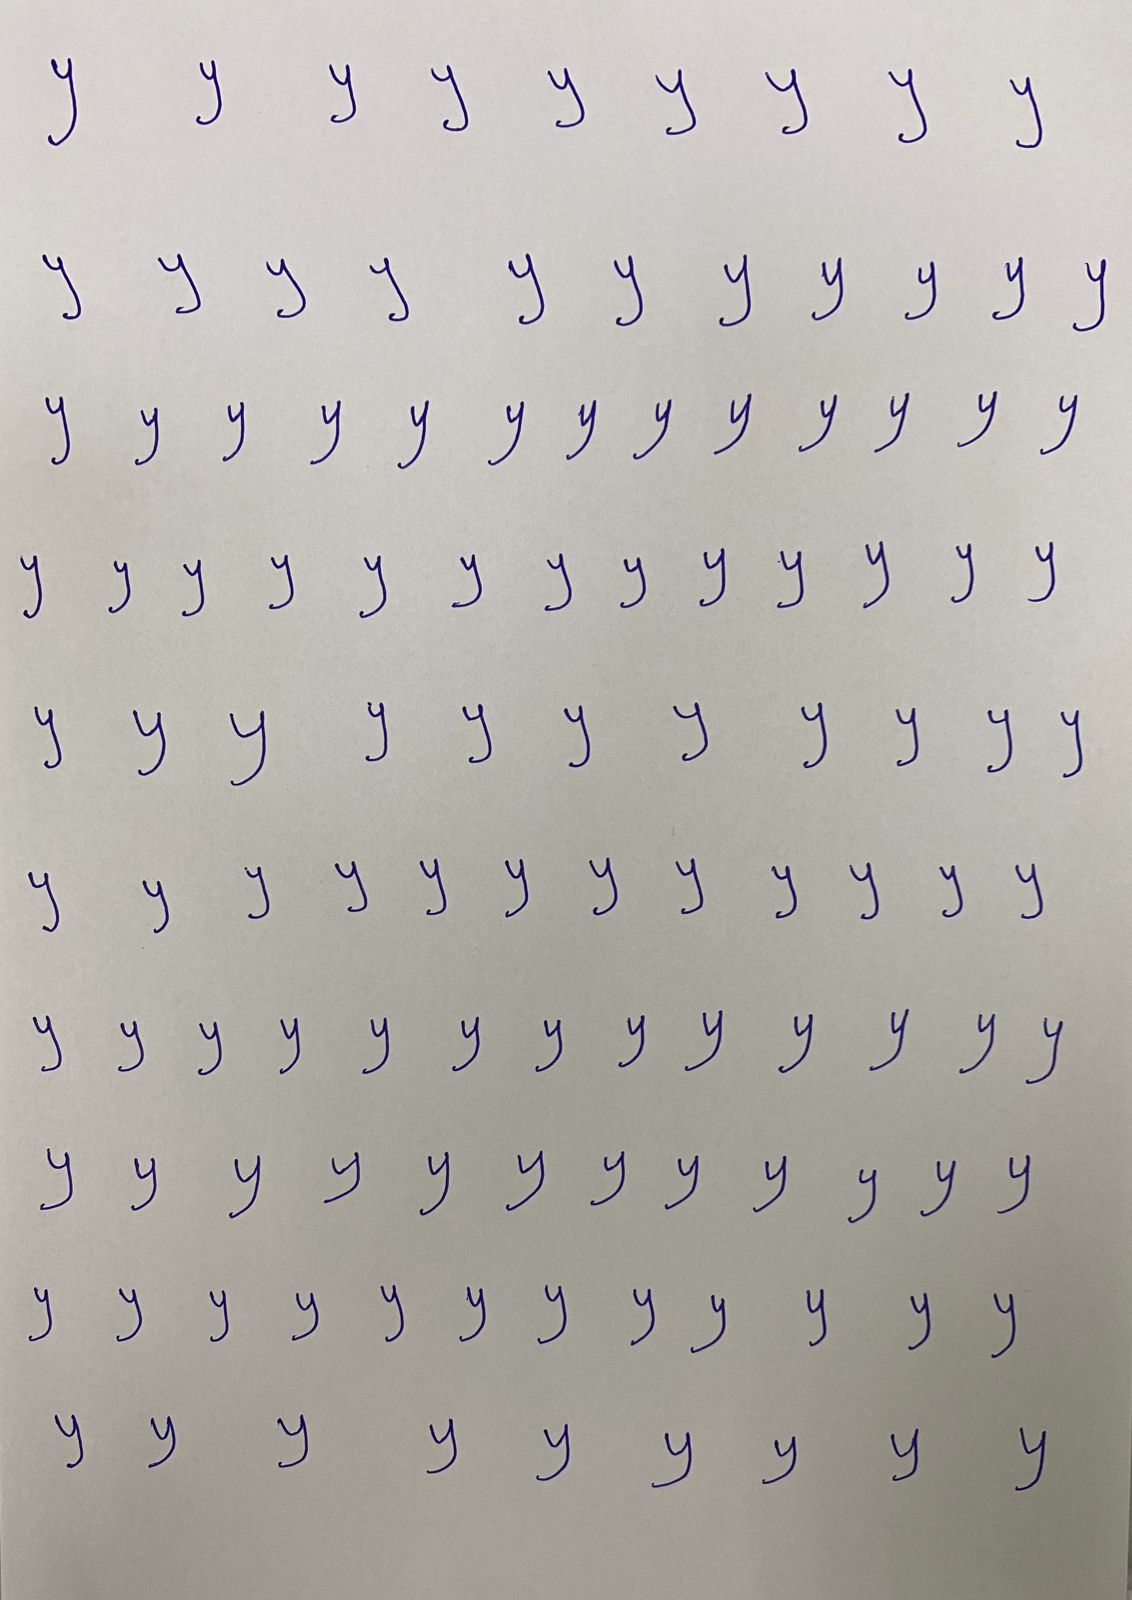 y y y y y y y y y
y y y y y y y y y y y
y y y y y y y y y y y y y
y y y y y y y y y y y y y
y y y y y y y y y y y
y y y y y y y y y y y y
y y y y y y y y y y y y y
y y y y y y y y y y y y
y y y y y y y y y y y y
y y y y y y y y y